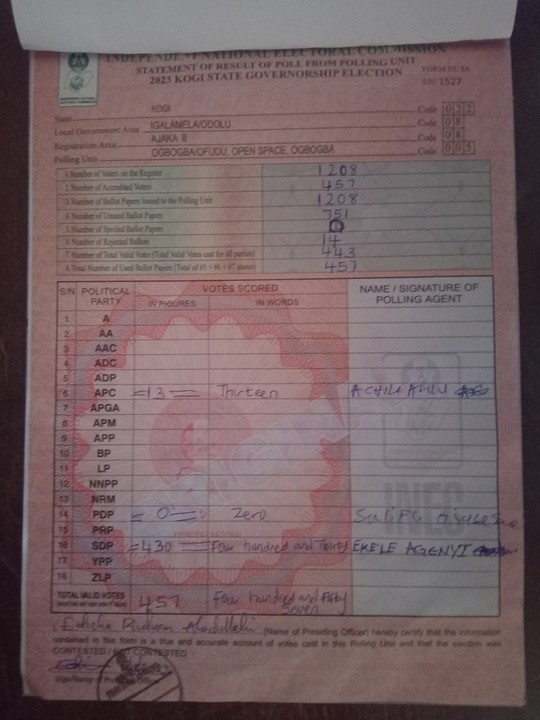 INDEPENDENT NATIONAL ELECTORAL COMMISSION
STATEMENT OF RESULT OF POLL FROM POLLING UNIT
2023 KOGI STATE GOVERNORSHIP ELECTION
FORM EC 8A
S/N: 1527
State KOGI Code 022
Local Government Area IGALAMELA/ODOLU Code 08
Registration Area AJAKA II Code 08
Polling Unit OGBOGBA/OFUDU, OPEN SPACE, OGBOGBA Code 005
1 Number of Voters on the Register 1208
2 Number of Accredited Voters 457
3 Number of Ballot Papers Issued to the Polling Unit 1208
4 Number of Unused Ballot Papers 751
5 Number of Spoiled Ballot Papers 0
6 Number of Rejected Ballots 14
7 Number of Total Valid Votes (Total Valid Votes cast for all parties) 443
8 Total Number of Used Ballot Papers (Total of #5 + #6 + #7 above) 457
S/N POLITICAL PARTY VOTES SCORED IN FIGURES IN WORDS NAME / SIGNATURE OF POLLING AGENT
1 A
2 AA
3 AAC
4 ADC
5 ADP
6 APC =13= Thirteen ACHILE
7 APGA
8 APM
9 APP
10 BP
11 LP
12 NNPP
13 NRM
14 PDP =0= Zero
15 PRP
16 SDP =430= Four hundred and Thirty EKELE AGENYI
17 YPP
18 ZLP
TOTAL VALID VOTES 457 Four hundred and fifty seven
I, (Name of Presiding Officer) hereby certify that the information
contained in this form is a true and accurate account of votes cast in this Polling Unit and that the election was
CONTESTED / NOT CONTESTED
INEC